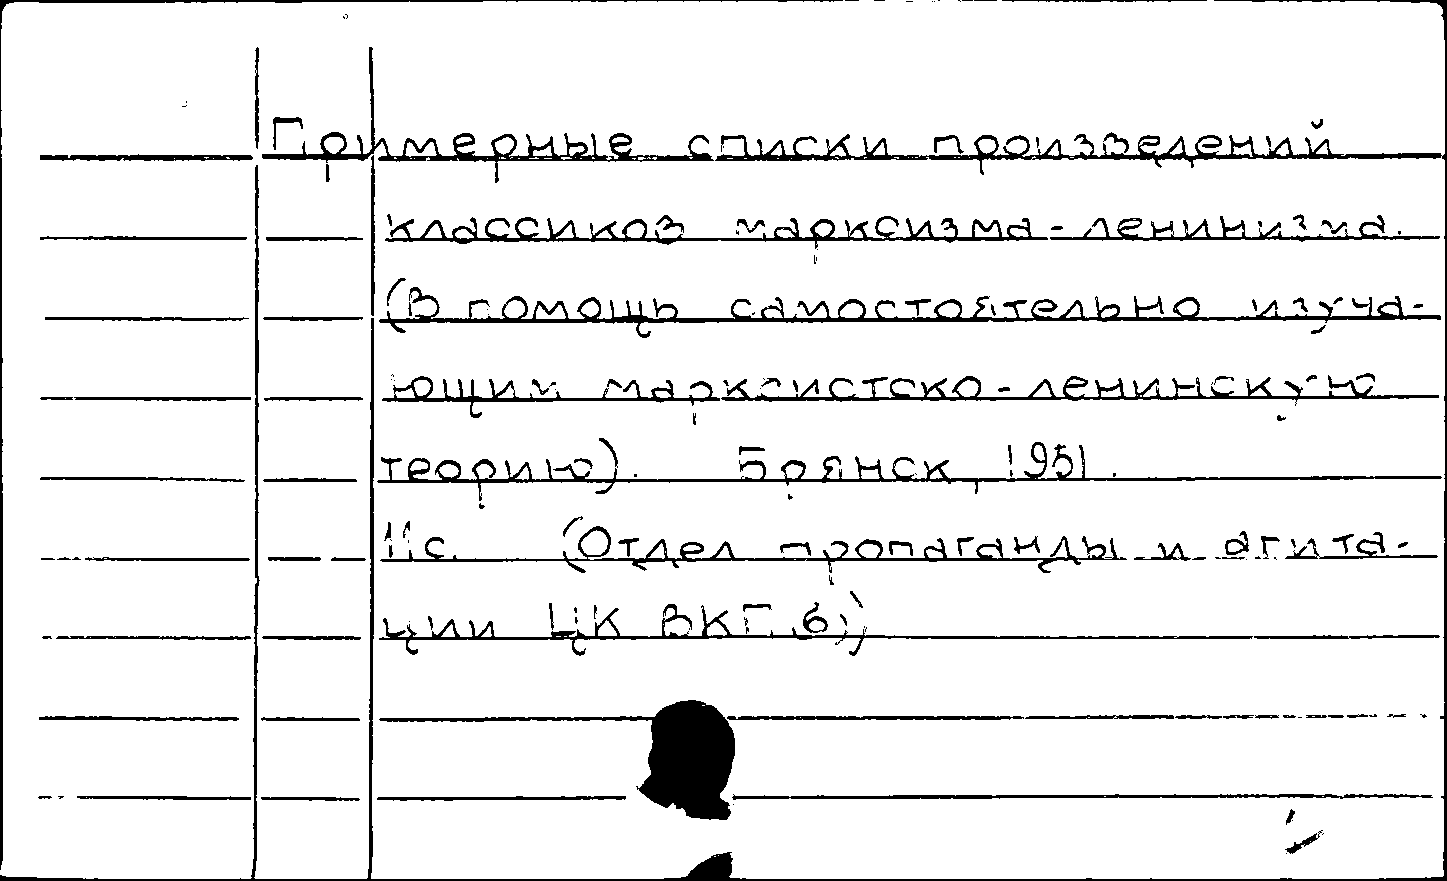 Примерные списки произведений
классиков марксизма-ленинизма.
(В помощь самостоятельно изуча-
ющим марксистско-ленинскую
теорию). Брянск, 1951.
11с. (Отдел пропаганды и агита-
ции ЦК ВКП(б))